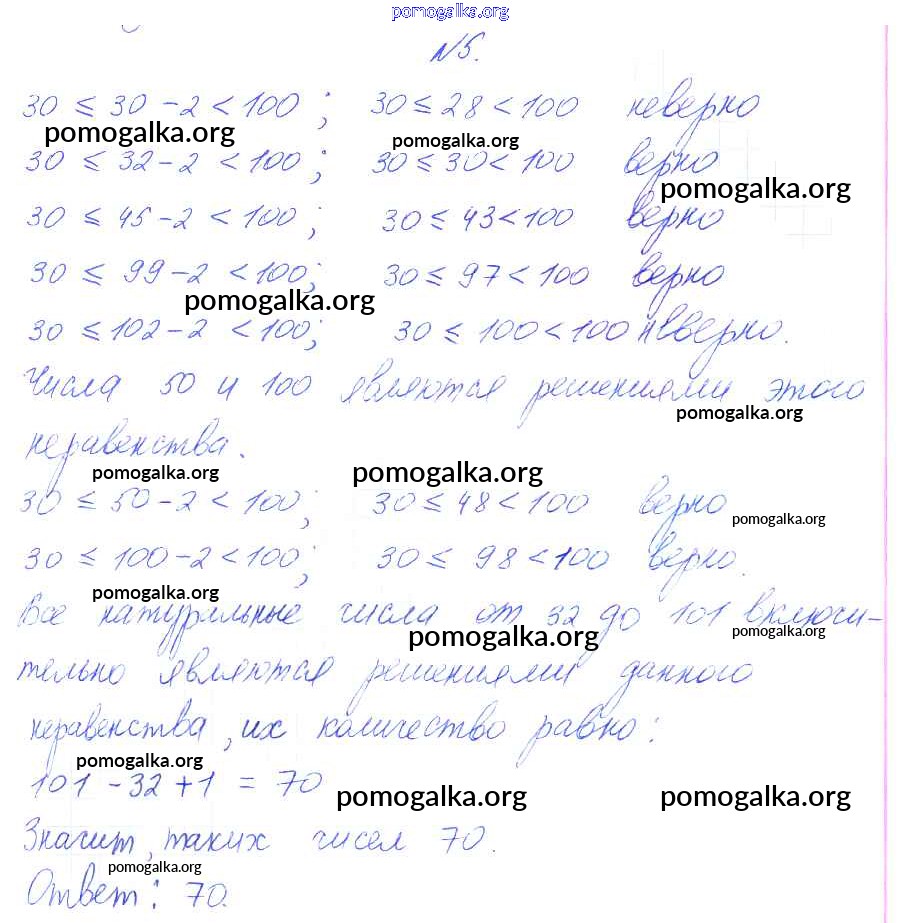 pomogalka.org
№5.
30 ≤ 30 - 2 < 100 ; 30 ≤ 28 < 100 неверно
pomogalka.org pomogalka.org
30 ≤ 32 - 2 < 100 ; 30 ≤ 30 < 100 верно
pomogalka.org
30 ≤ 45 - 2 < 100 ; 30 ≤ 43 < 100 верно
30 ≤ 99 - 2 < 100 ; 30 ≤ 97 < 100 верно
pomogalka.org
30 ≤ 102 - 2 < 100 ; 30 ≤ 100 < 100 неверно.
Числа 50 и 100 являются решениями этого
pomogalka.org
неравенства.
pomogalka.org pomogalka.org
30 ≤ 50 - 2 < 100 ; 30 ≤ 48 < 100 верно
pomogalka.org
30 ≤ 100 - 2 < 100 ; 30 ≤ 98 < 100 верно.
pomogalka.org
Все натуральные числа от 32 до 101 включи-
pomogalka.org pomogalka.org
тельно являются решениями данного
неравенства, их количество равно:
pomogalka.org
101 - 32 + 1 = 70
pomogalka.org pomogalka.org
Значит, таких чисел 70.
pomogalka.org
Ответ: 70.